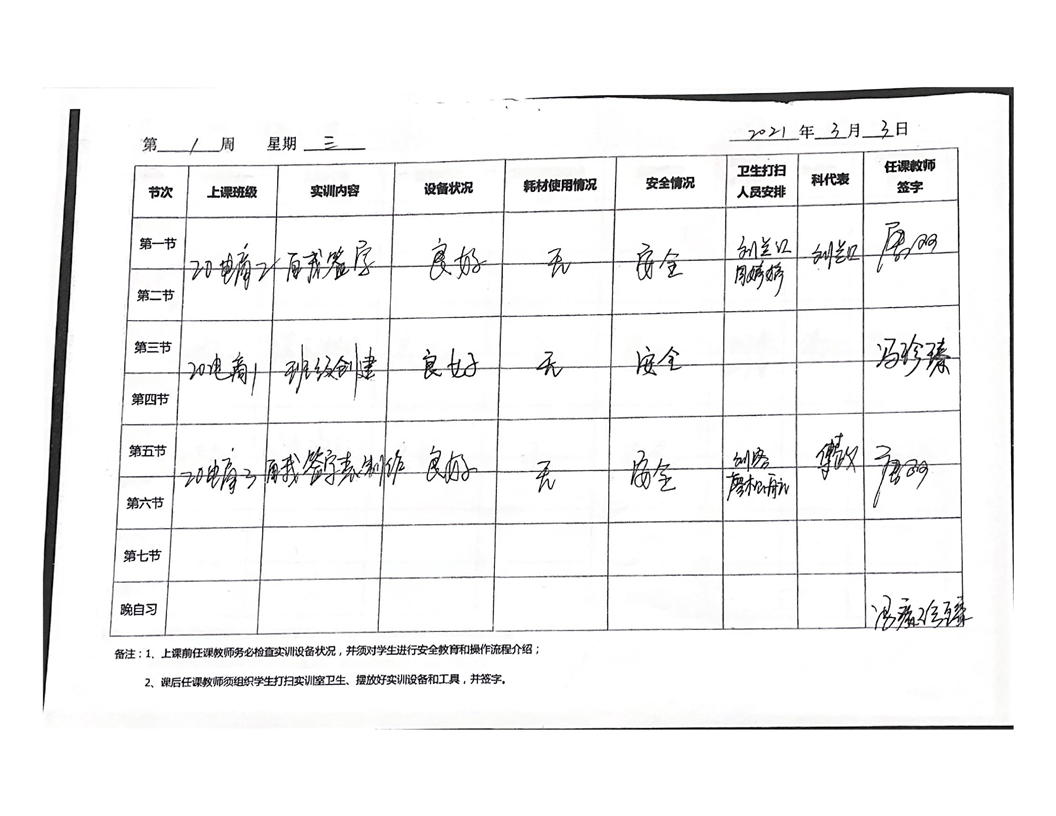 第 1 周 星期 三 2021 年 3 月 3 日
节次 上课班级 实训内容 设备状况 耗材使用情况 安全情况 卫生打扫人员安排 科代表 任课教师签字
第一节
20电商2 良好 无 安全
第二节
第三节
20电商1 班级创建 良好 无 安全 冯珍臻
第四节
第五节
20电商3 良好 无 安全
第六节
第七节
晚自习
备注：1、上课前任课教师务必检查实训设备状况，并须对学生进行安全教育和操作流程介绍；
2、课后任课教师须组织学生打扫实训室卫生、摆放好实训设备和工具，并签字。